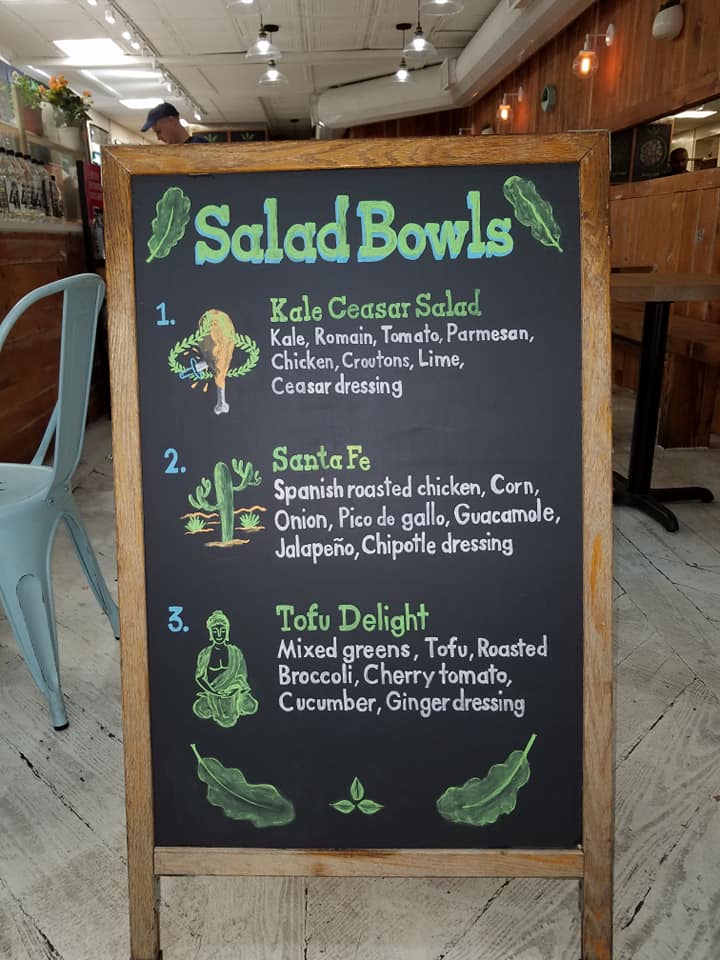 Salad Bowls
1.
Kale Ceasar Salad
Kale, Romain, Tomato, Parmesan,
Chicken, Croutons, Lime,
Ceasar dressing
2.
Santa Fe
Spanish roasted chicken, Corn,
Onion, Pico de gallo, Guacamole,
Jalapeño, Chipotle dressing
3.
Tofu Delight
Mixed greens, Tofu, Roasted
Broccoli, Cherry tomato,
Cucumber, Ginger dressing